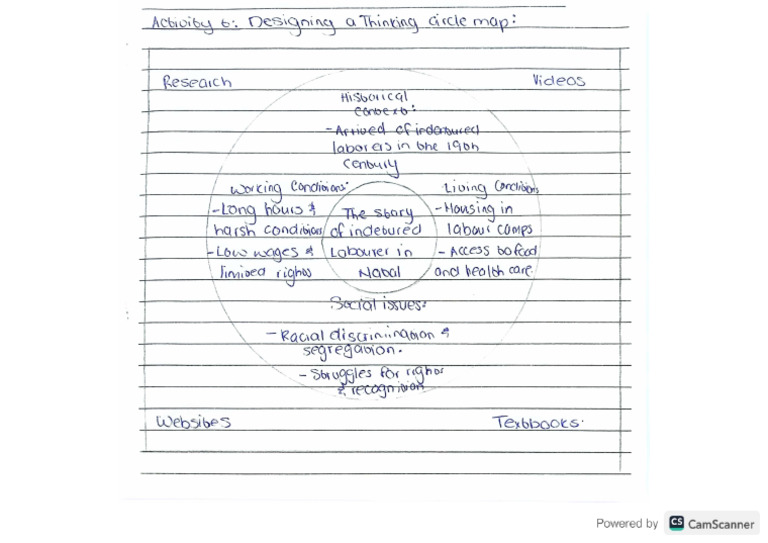 Activity 6: Designing a Thinking circle map:
Research
Videos
Historical
Context:
- Arrived of indentured
laborers in the 19th
Century
Working Conditions:
- Long hours &
harsh conditions
- Low wages &
limited rights
The story
of indebured
Labourer in
Natal
Living Conditions
- Housing in
labour camps
- Access to food
and health care.
Social issues:
- Racial discrimination &
segregation.
- Struggles for rights
& recognition
Websites
Textbooks.
Powered by CS CamScanner